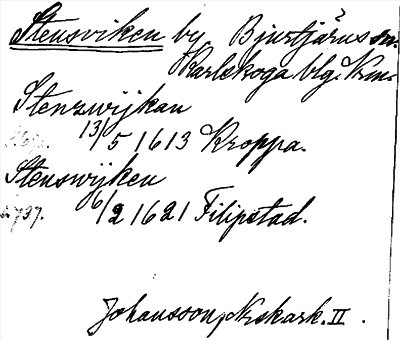 Stensviken by Bjurtjärns sn.
Karlskoga blg. Vrm.
Stenzwijkan
13/5 1613 Kroppa.
Stenswijken
6/2 1621 Filipstad.
Johansson, Nrskark. II.